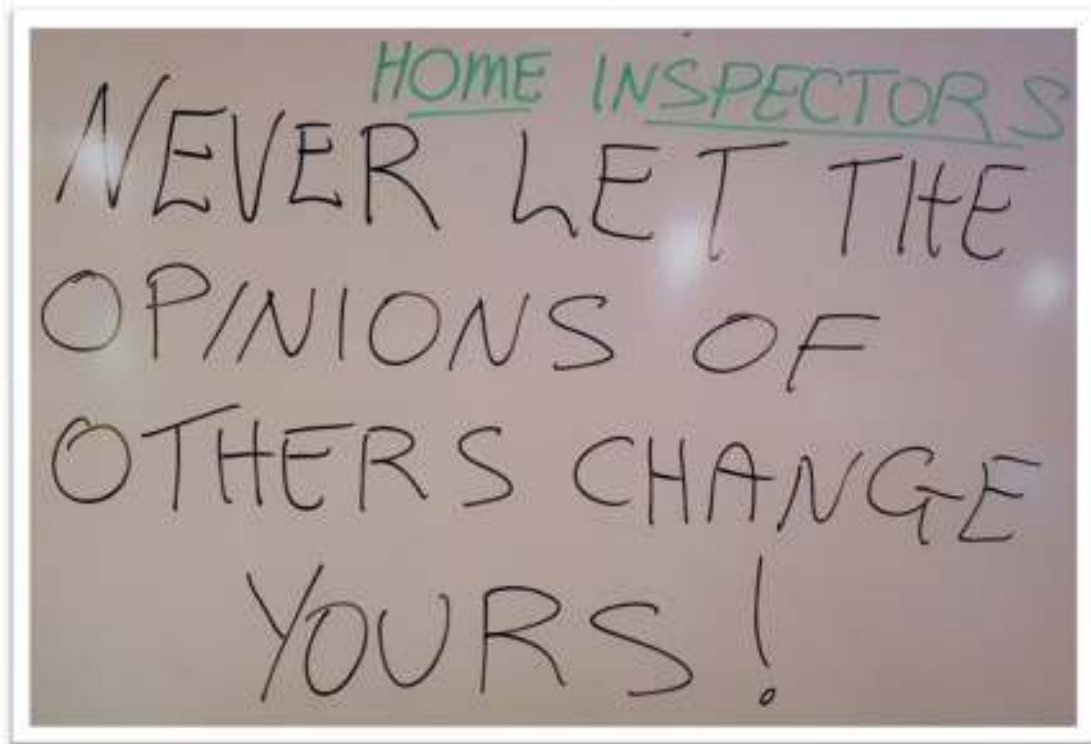 HOME INSPECTORS
NEVER LET THE
OPINIONS OF
OTHERS CHANGE
YOURS!